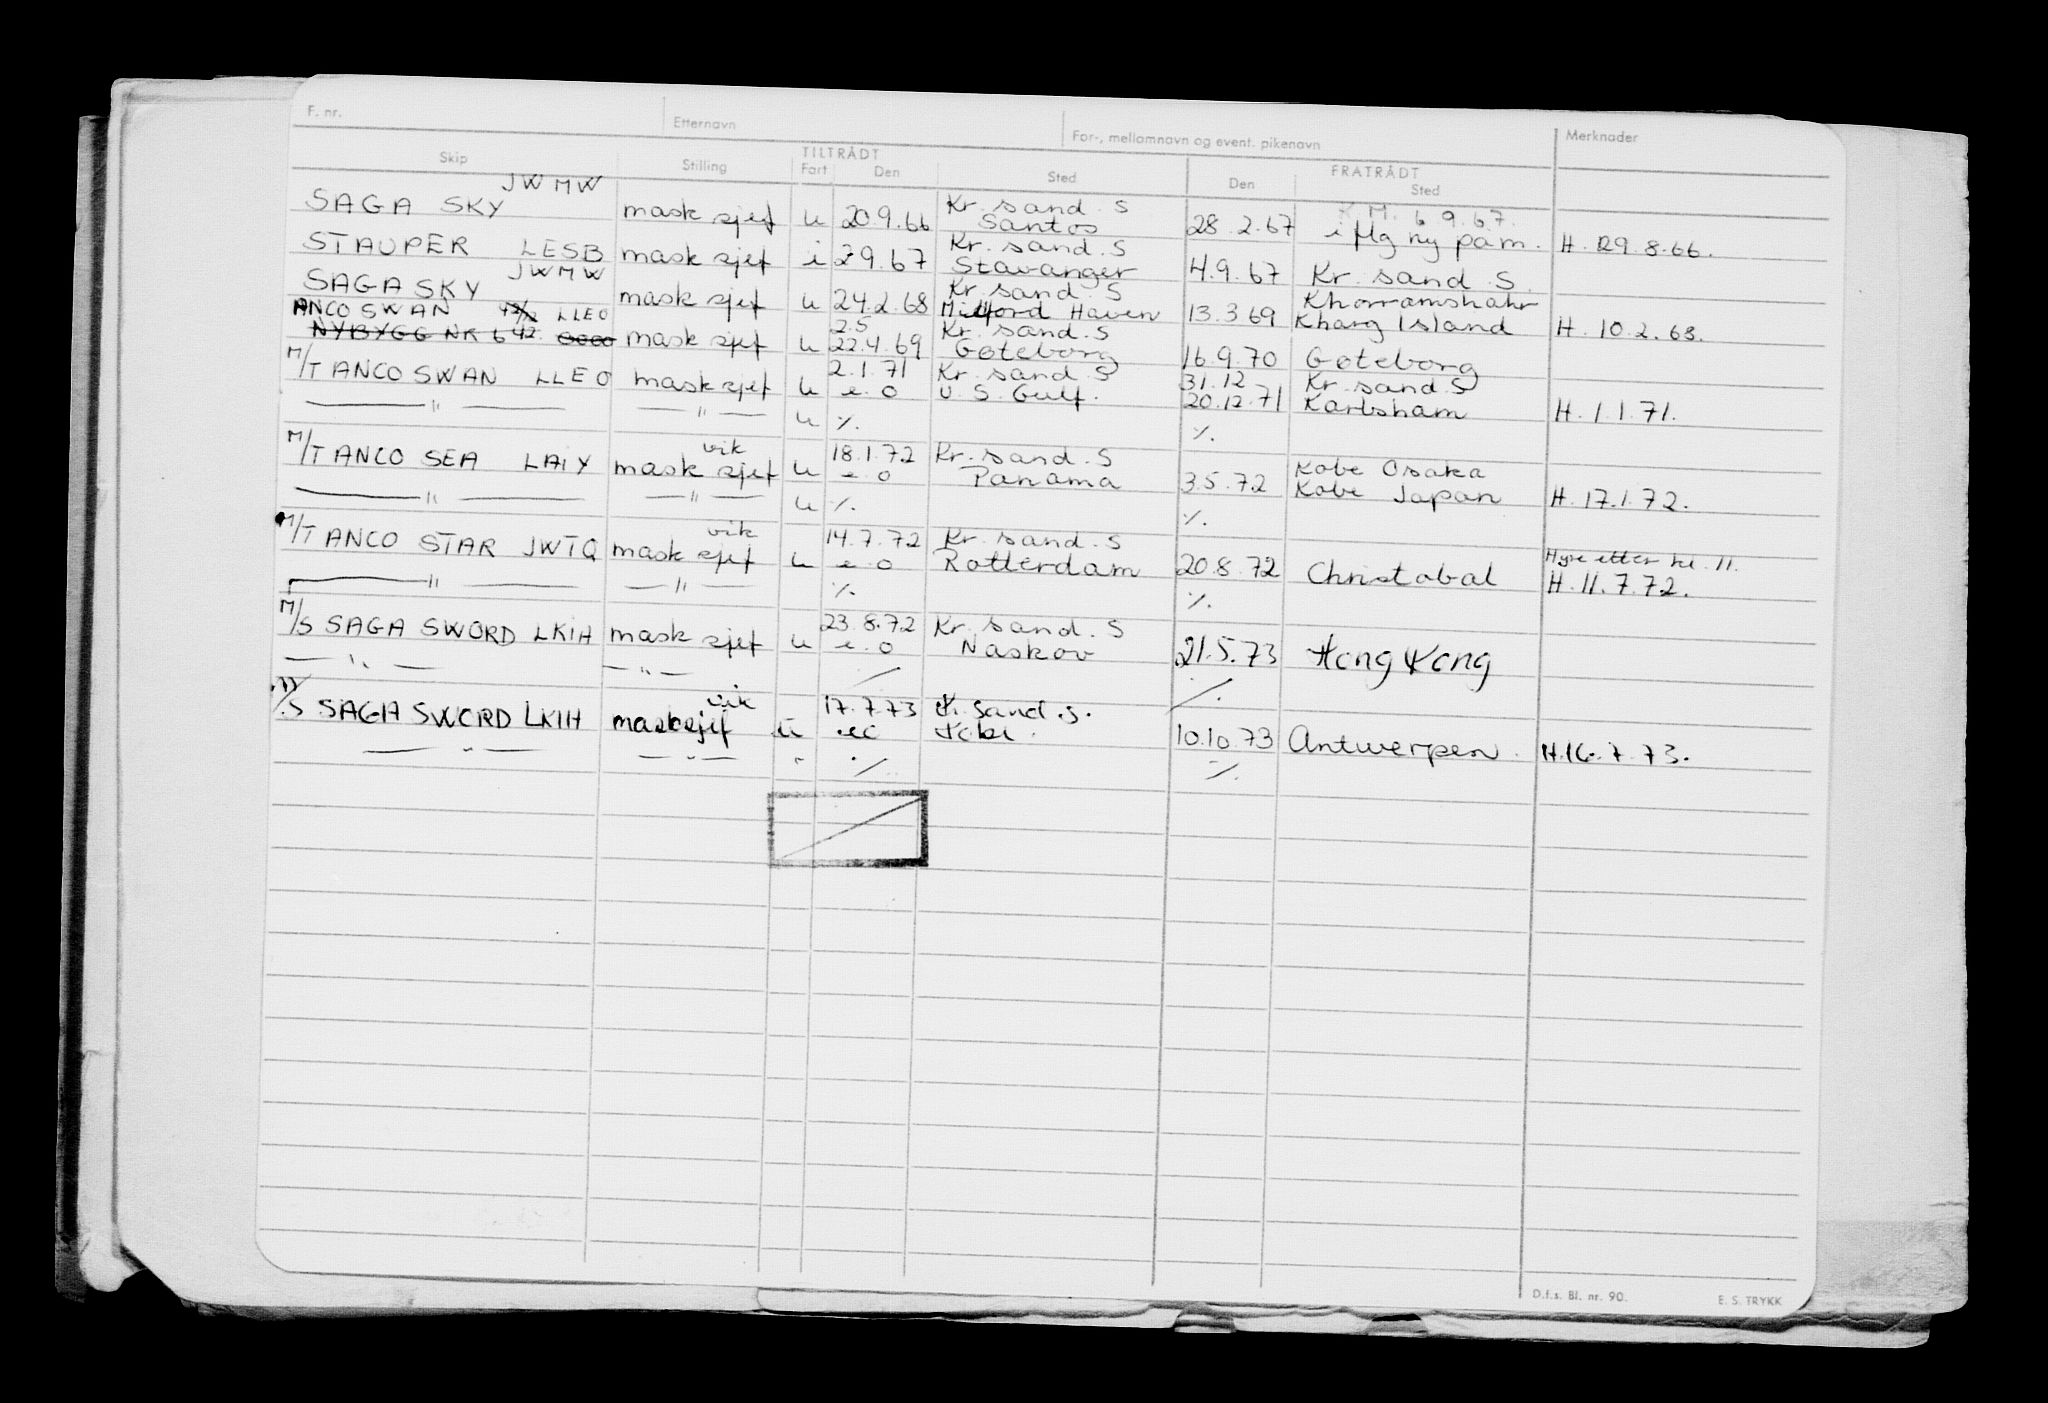 F. nr. Etternavn For-, mellomnavn og event. pikenavn Merknader
TILTRÅDT FRATRÅDT
Skip Stilling Fart Den Sted Den Sted
JWMW Kr. sand. S K.M. 6.9.67.
SAGA SKY mask sjef u 20.9.66 Santos 28.2.67 iflg ny påm. H. 29.8.66.
Kr. sand. S
STAUPER LESB mask sjef i 2.9.67 Stavanger 4.9.67 Kr. sand S.
JWMW Kr. sand. S Khorramshahr
SAGA SKY mask sjef u 24.2.68 Milford Haven 13.3.69 Kharg Island H. 10.2.68.
ANCO SWAN LLEO 2.5 Kr. sand. S
NYBYGG NR 642 mask sjef u 22.4.69 Gøteborg 16.9.70 Gøteborg
2.1.71 Kr. sand. S 31.12 Kr. sand S
M/T ANCO SWAN LLEO mask sjef u e.o U.S. Gulf. 20.12.71 Karlshamn H. 1.1.71.
— " — — " — u ./. ./.
vik 18.1.72 Kr. sand. S Kobe Osaka
M/T ANCO SEA LAIY mask sjef u e.o Panama 3.5.72 Kobe Japan H. 17.1.72.
— " — — " — u ./. ./.
vik 14.7.72 Kr. sand. S Hyre etter kl. 11.
M/T ANCO STAR JWTQ mask sjef u e.o Rotterdam 20.8.72 Christobal H. 11.7.72.
— " — — " — ./. ./.
23.8.72 Kr. sand. S
M/S SAGA SWORD LKIH mask sjef u e.o Naskov 21.5.73 Hong Kong
— " — — " — ./. ./.
vik 17.7.73 Kr. sand. S.
M/S SAGA SWORD LKIH mask sjef u e.o 10.10.73 Antwerpen. H. 16.7.73.
— " — — " — " ./. ./.
D.f.s. Bl. nr. 90. E. S. TRYKK